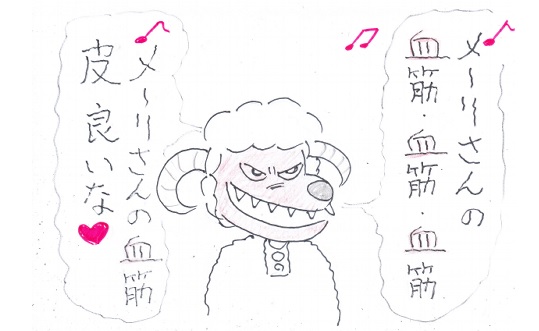 メ〜リさんの
血筋・血筋・血筋
メ〜リさんの血筋
皮良いな